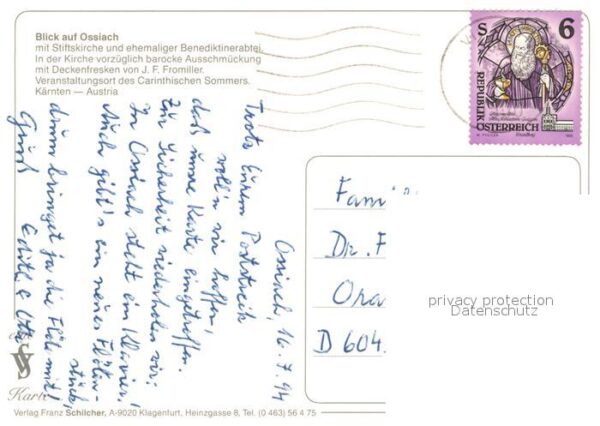 Blick auf Ossiach
mit Stiftskirche und ehemaliger Benediktinerabtei.
In der Kirche vorzüglich barocke Ausschmückung
mit Deckenfresken von J. F. Fromiller.
Veranstaltungsort des Carinthischen Sommers.
Kärnten — Austria
S 6
REPUBLIK
ÖSTERREICH
Ossiach, 16.7.94
Trotz Eurem Poststreik
woll'n wir hoffen,
daß unsre Karte eingetroffen.
Zur Sicherheit wiederholen wir:
In Ossiach steht ein Klavier,
Auch gibt's ein neues Flöten-
stück,
drum bringet ja die Flöt mit!
Gruß Edith &
Fam
Dr. F
Ora
D 604.
privacy protection
Datenschutz
Karte
Verlag Franz Schilcher, A-9020 Klagenfurt, Heinzgasse 8, Tel. (0 463) 56 4 75